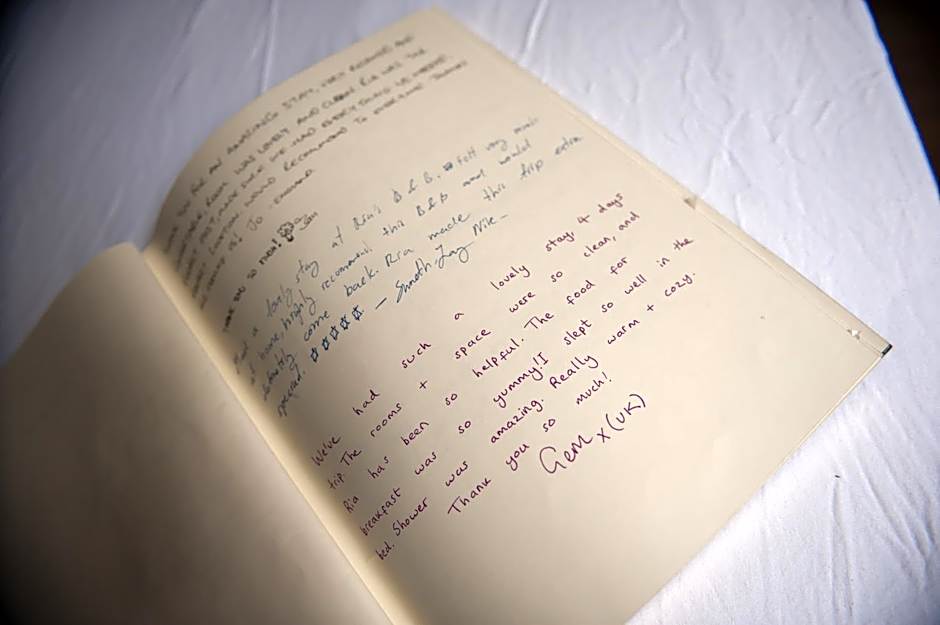 AN AMAZING STAY, VERY RELAXED AND
ROOM WAS LOVELY AND CLEAN. RIA WAS THE
MADE SURE WE HAD EVERYTHING WE NEEDED.
LOCATION WOULD RECOMMEND TO EVERYONE
JO - ENGLAND
THANK YOU SO MUCH!
Had a lovely stay at Ria's B & B. felt very much
@ home, highly recommend this B&B and would
definitely come back. Ria made this trip extra
special. ☆☆☆☆☆ –
We've had such a lovely stay, 4 days
trip. The rooms + space were so clean, and
Ria has been so helpful. The food for
breakfast was so yummy! I slept so well in the
bed. Shower was amazing. Really warm + cozy.
Thank you so much!
Gem x (UK)